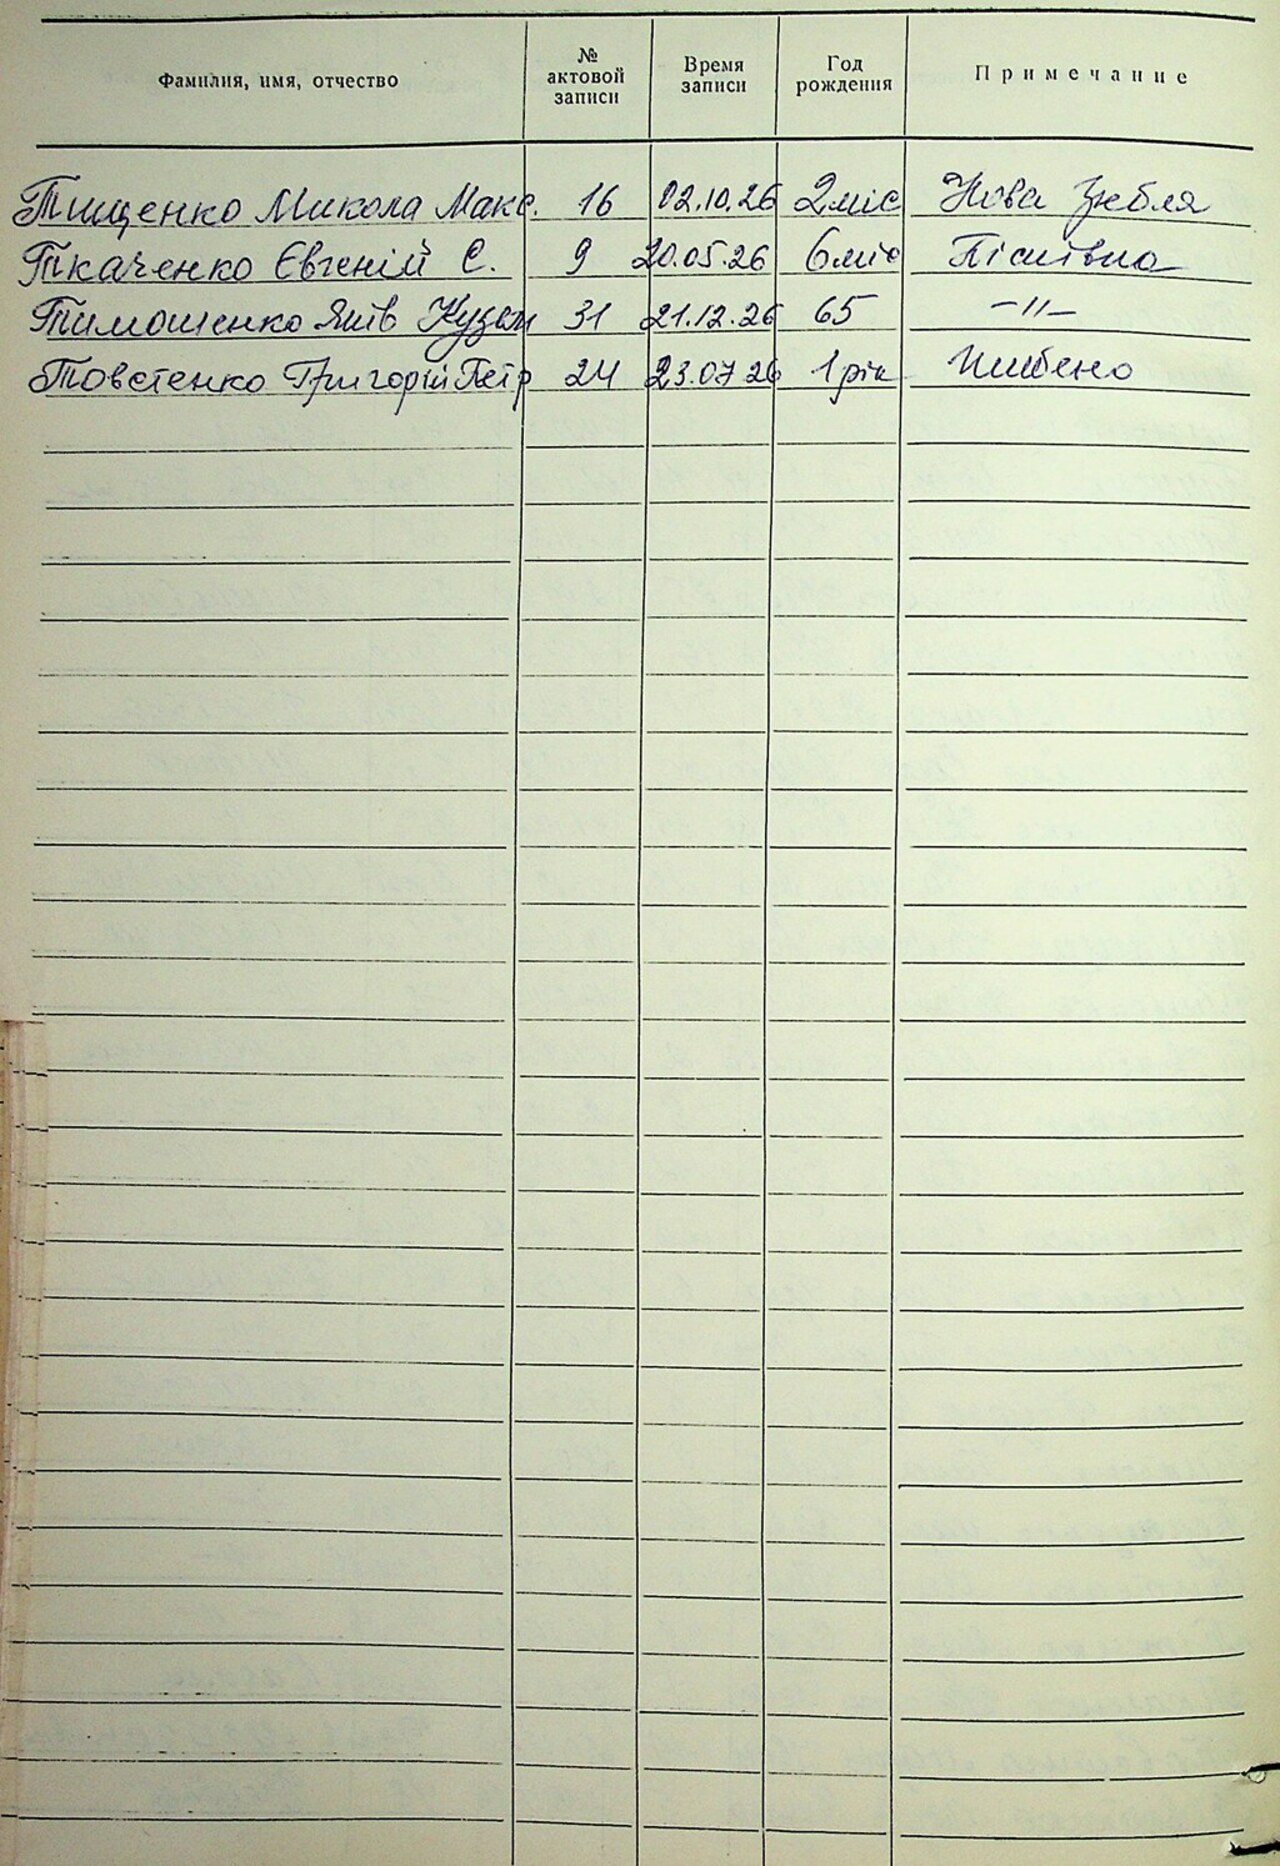 Фамилия, имя, отчество № актовой записи Время записи Год рождения Примечание
Тищенко Микола Макс. 16 02.10.26 2 міс Нова Гребля
Ткаченко Євгеній С. 9 20.05.26 6 міс Пісківка
Тимошенко Яків Кузьм 31 21.12.26 65 –"–
Товстенко Григорій Петр 24 23.07.26 1 рік